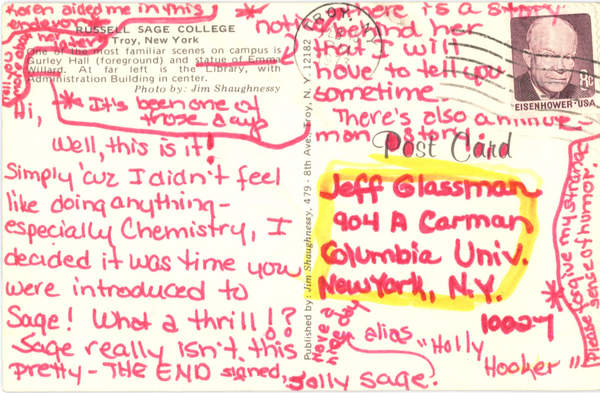 Karen aided me in this
endeavor.
Tell you
more about
her later
RUSSELL SAGE COLLEGE
Troy, New York
One of the most familiar scenes on campus is
Gurley Hall (foreground) and statue of Emma
Willard. At far left is the Library, with
Administration Building in center.
Photo by: Jim Shaughnessy
notice there is a story
behind her
that I will
have to tell you
sometime.
There's also a
man story!
TROY, N.Y.
EISENHOWER·USA
8c
* It's been one of
those days
Hi,
Well, this is it!
Simply 'cuz I didn't feel
like doing anything-
especially Chemistry, I
decided it was time you
were introduced to
Sage! What a thrill!?
Sage really isn't this
pretty - THE END signed,
Jolly Sage.
alias
"Holly
Hooker"
Have a
nice day
Published by: Jim Shaughnessy, 479 - 8th Ave., Troy, N. Y. 12182
Post Card
Jeff Glassman
904 A Carman
Columbia Univ.
New York, N.Y.
10027
* Please forgive my strange
sense of humor.